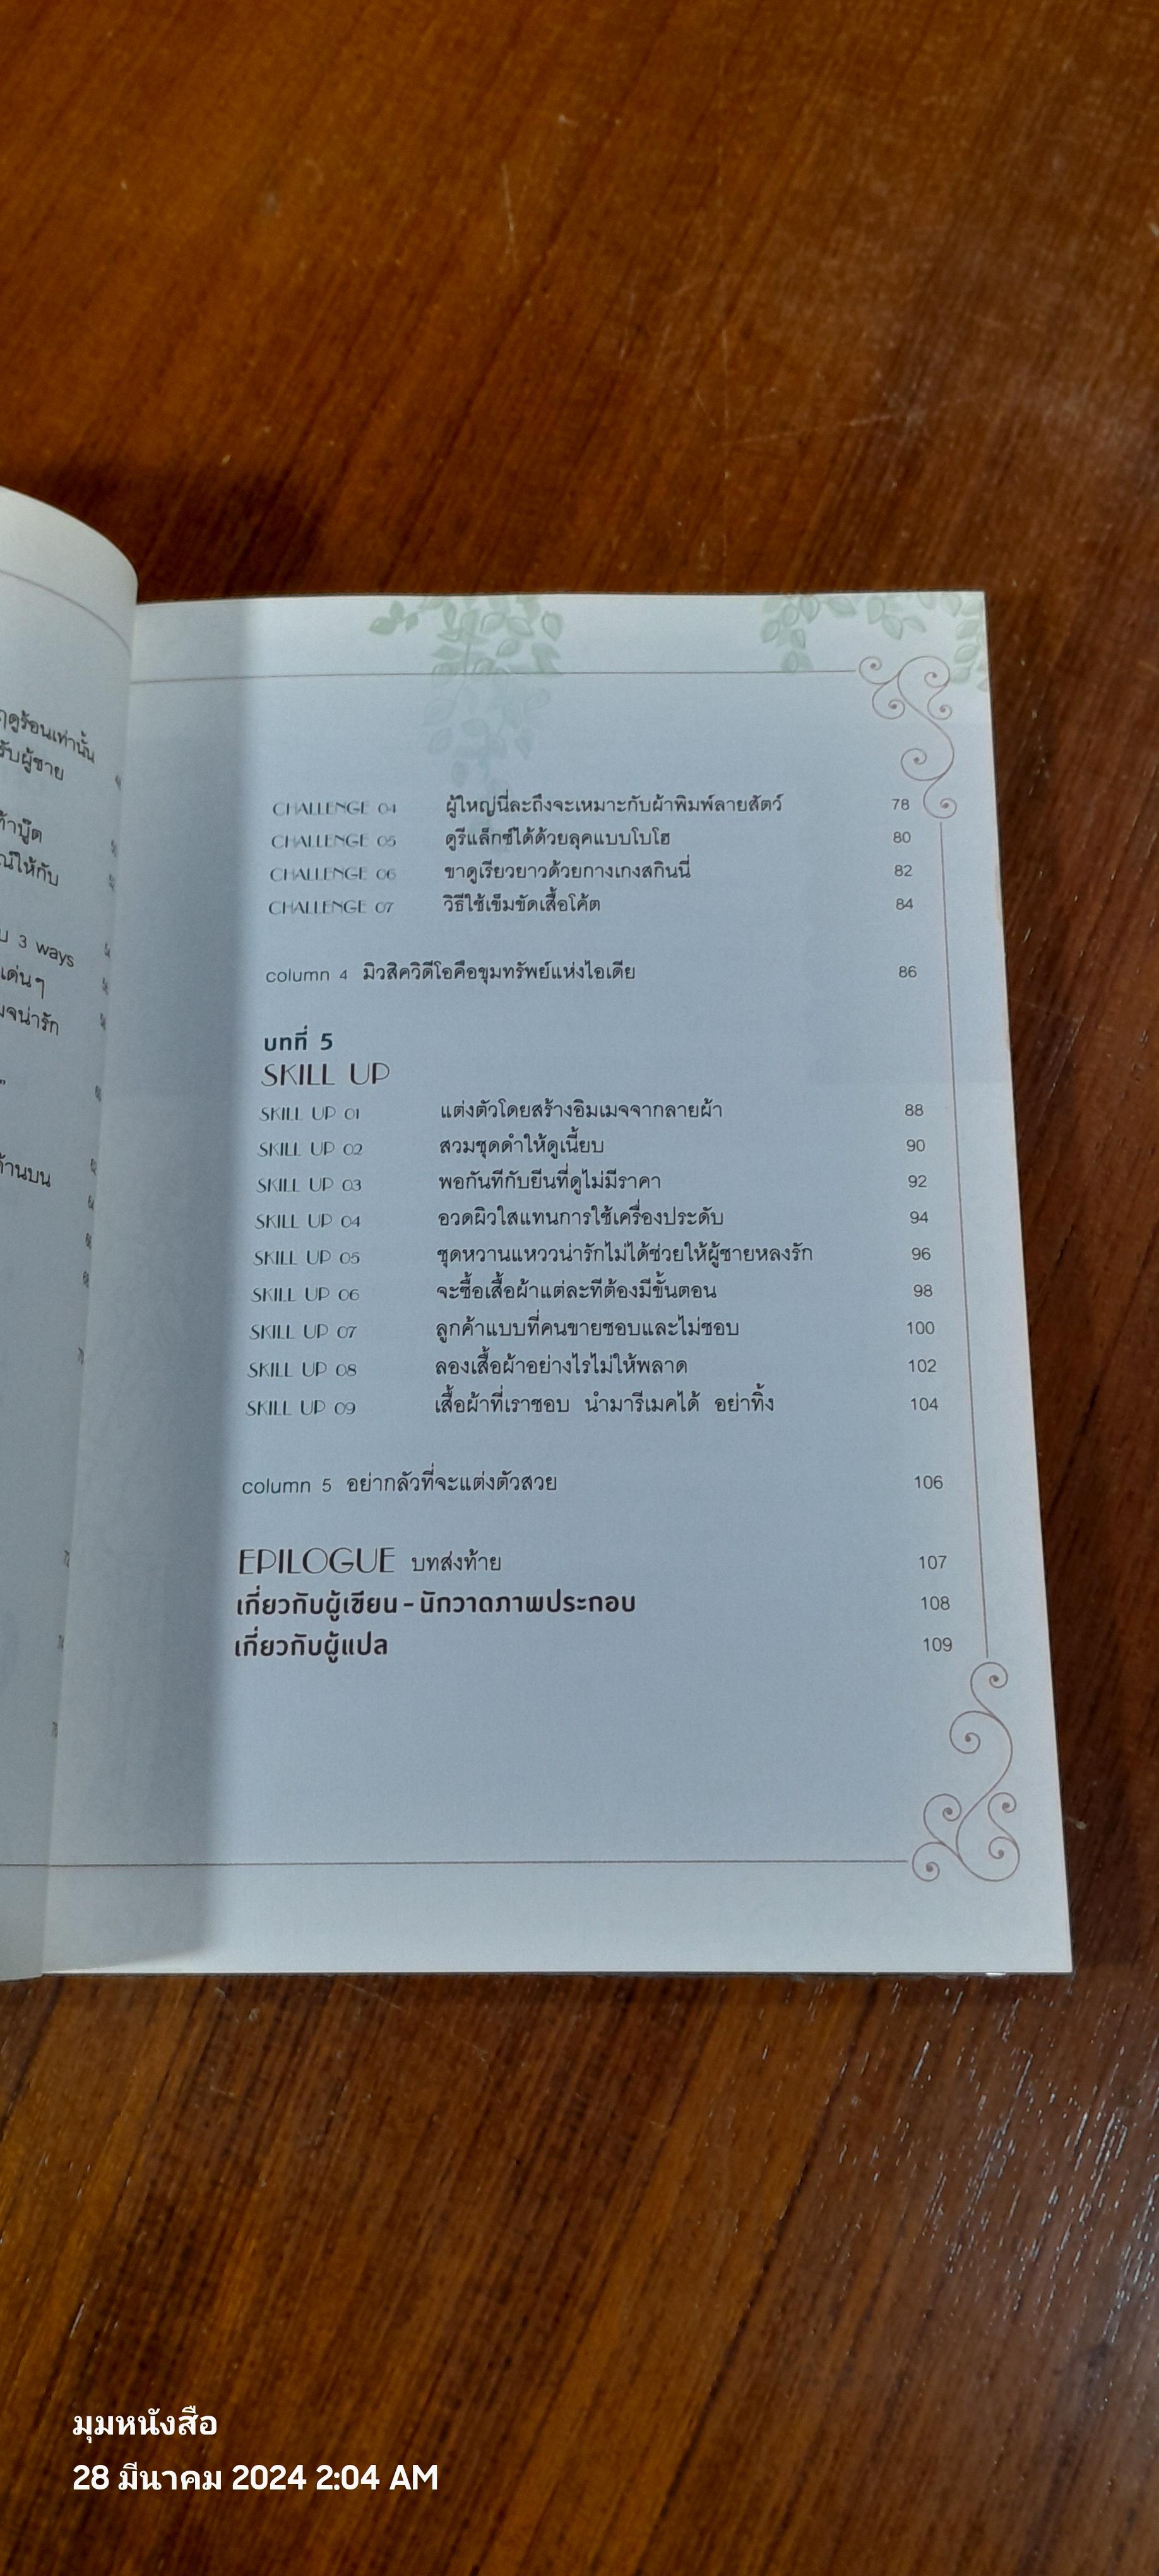 ฤดูร้อนเท่านั้น
รับผู้ชาย
ท้าบู๊ต
ณ์ให้กับ
3 ways
เด่นๆ
น่ารัก
ด้านบน
CHALLENGE 04 ผู้ใหญ่นี่ละถึงจะเหมาะกับผ้าพิมพ์ลายสัตว์ 78
CHALLENGE 05 ดูรีแล็กซ์ได้ด้วยลุคแบบโบโฮ 80
CHALLENGE 06 ขาดูเรียวยาวด้วยกางเกงสกินนี่ 82
CHALLENGE 07 วิธีใช้เข็มขัดเสื้อโค้ต 84
column 4 มิวสิควิดีโอคือขุมทรัพย์แห่งไอเดีย 86
บทที่ 5
SKILL UP
SKILL UP 01 แต่งตัวโดยสร้างอิมเมจจากลายผ้า 88
SKILL UP 02 สวมชุดดำให้ดูเนี้ยบ 90
SKILL UP 03 พอกันทีกับยีนที่ดูไม่มีราคา 92
SKILL UP 04 อวดผิวใสแทนการใช้เครื่องประดับ 94
SKILL UP 05 ชุดหวานแหววน่ารักไม่ได้ช่วยให้ผู้ชายหลงรัก 96
SKILL UP 06 จะซื้อเสื้อผ้าแต่ละทีต้องมีขั้นตอน 98
SKILL UP 07 ลูกค้าแบบที่คนขายชอบและไม่ชอบ 100
SKILL UP 08 ลองเสื้อผ้าอย่างไรไม่ให้พลาด 102
SKILL UP 09 เสื้อผ้าที่เราชอบ นำมารีเมคได้ อย่าทิ้ง 104
column 5 อย่ากลัวที่จะแต่งตัวสวย 106
EPILOGUE บทส่งท้าย 107
เกี่ยวกับผู้เขียน - นักวาดภาพประกอบ 108
เกี่ยวกับผู้แปล 109
มุมหนังสือ
28 มีนาคม 2024 2:04 AM